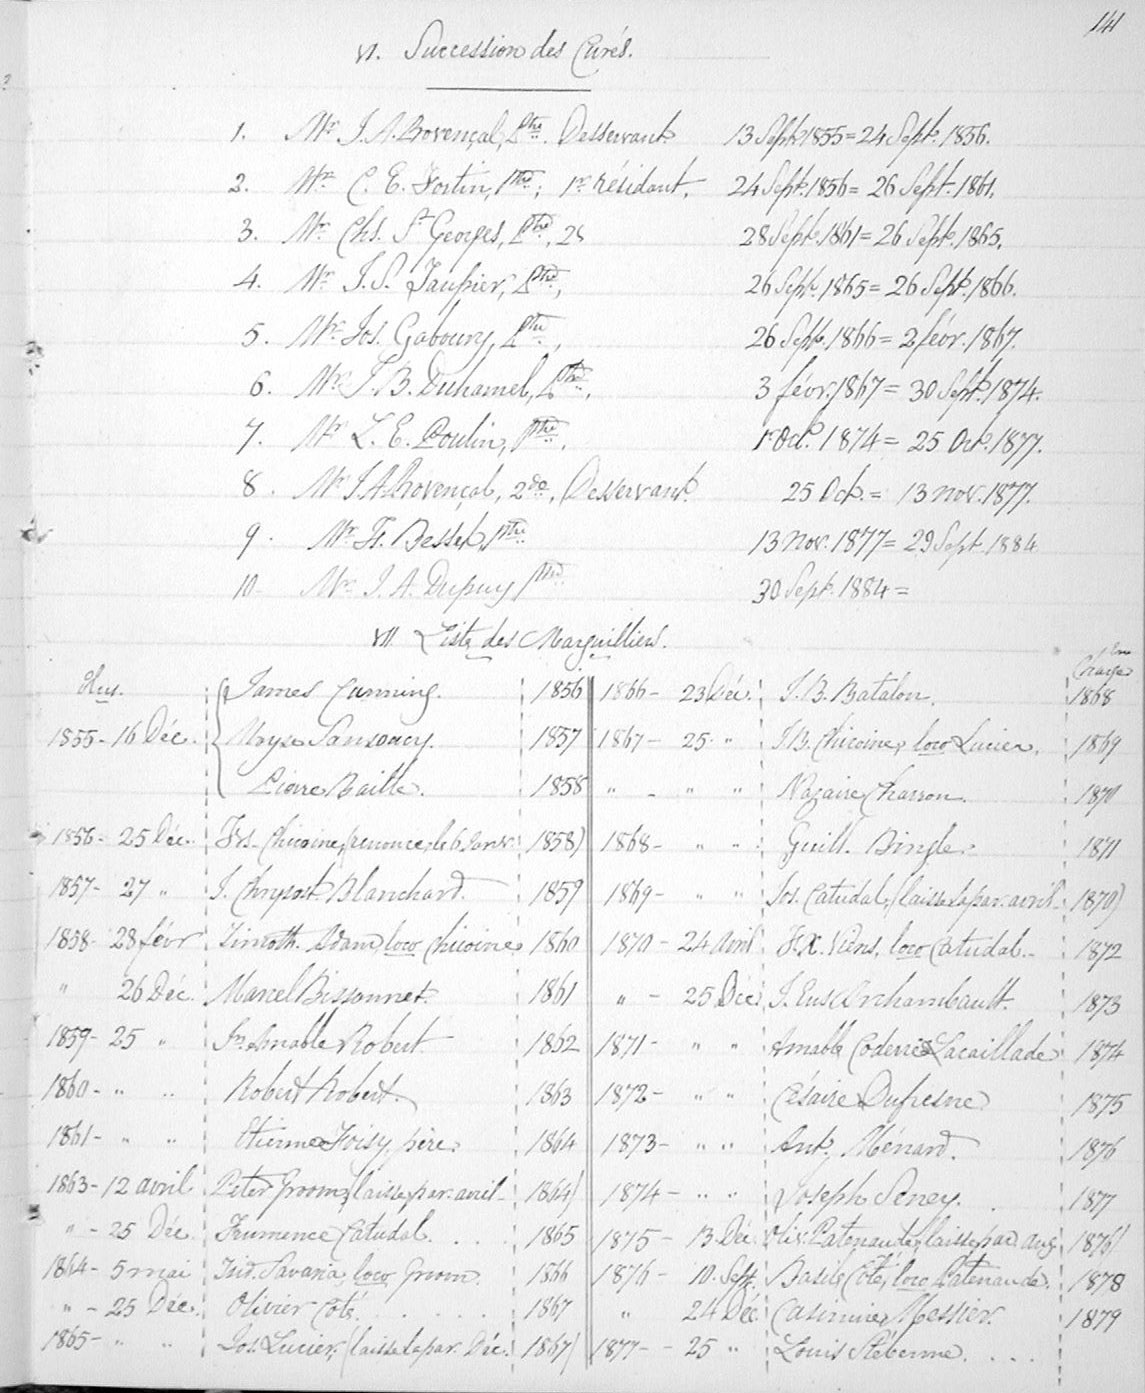 141
VI. Succession des Curés.
1. Mr J. A. Provençal, Ptre. Desservant. 13 Sept. 1855 = 24 Sept. 1856.
2. Mr C. E. Fortin, Ptre; 1r résidant. 24 Sept. 1856 = 26 Sept. 1861.
3. Mr Chs. St Georges, Ptre, 28 Sept. 1861 = 26 Sept. 1865.
4. Mr J. S. Taupier, Ptre, 26 Sept. 1865 = 26 Sept. 1866.
5. Mr Jos. Gaboury, Ptre, 26 Sept. 1866 = 2 févr. 1867.
6. Mr J. B. Duhamel, Ptre, 3 févr. 1867 = 30 Sept. 1874.
7. Mr L. E. Poulin, Ptre. 1r Oct. 1874 = 25 Oct. 1877.
8. Mr J. A. Provençal, 2do, Desservant. 25 Oct. = 13 nov. 1877.
9. Mr Fs. Besset, Ptre 13 nov. 1877 = 29 Sept. 1884
10. Mr J. A. Dupuy Ptre 30 Sept. 1884 =
VII. Liste des Marguilliers.
Elus.
James Cunning. 1856
1855 - 16 Déc. Moyse Sansoucy. 1857
Pierre Baille. 1858
1856 - 25 Déc. Frs. Chicoine, (renonce le 6 Janv. 1858)
1857 - 27 " J. Chrysost. Blanchard. 1859
1858 - 28 févr Timoth. Adam, loco Chicoine 1860
" 26 Déc. Marcel Bissonnet. 1861
1859 - 25 " Amable Robert. 1862
1860 - " " Robert Robert. 1863
1861 - " " Etienne Foisy, père. 1864
1863 - 12 avril Peter Groom, (laisse par. avril - 1864)
" - 25 Déc. Frumence Catudal. 1865
1864 - 5 mai Savaria, loco Groom. 1866
" - 25 Déc. Olivier Coté. 1867
1865 - " " Jos. Lucier, (laisse la par. Déc. 1867)
en Charge
1866 - 23 Déc. J. B. Batalon. 1868
1867 - 25 " J. B. Chicoine, loco Lucier. 1869
" - " " Nazaire Charron. 1870
1868 - " " Guill. Bingle. 1871
1869 - " " Jos. Catudal, (laisse la par. avril - 1870)
1870 - 24 avril F. X. Viens, loco Catudal. - 1872
" - 25 Déc. J. Eus. Archambault. 1873
1871 - " " Amable Coderre Lacaillade 1874
1872 - " " Césaire Dufresne 1875
1873 - " " Ant. Ménard. 1876
1874 - " " Joseph Seney. 1877
1875 - 13 Déc. Oliv. Patenaude, (laisse par. aug. 1876)
1876 - 10. Sept. Basile Coté, loco Patenaude. 1878
" 24 Déc. Casimir Messier. 1879
1877 - - 25 " Louis Stébenne. . . .